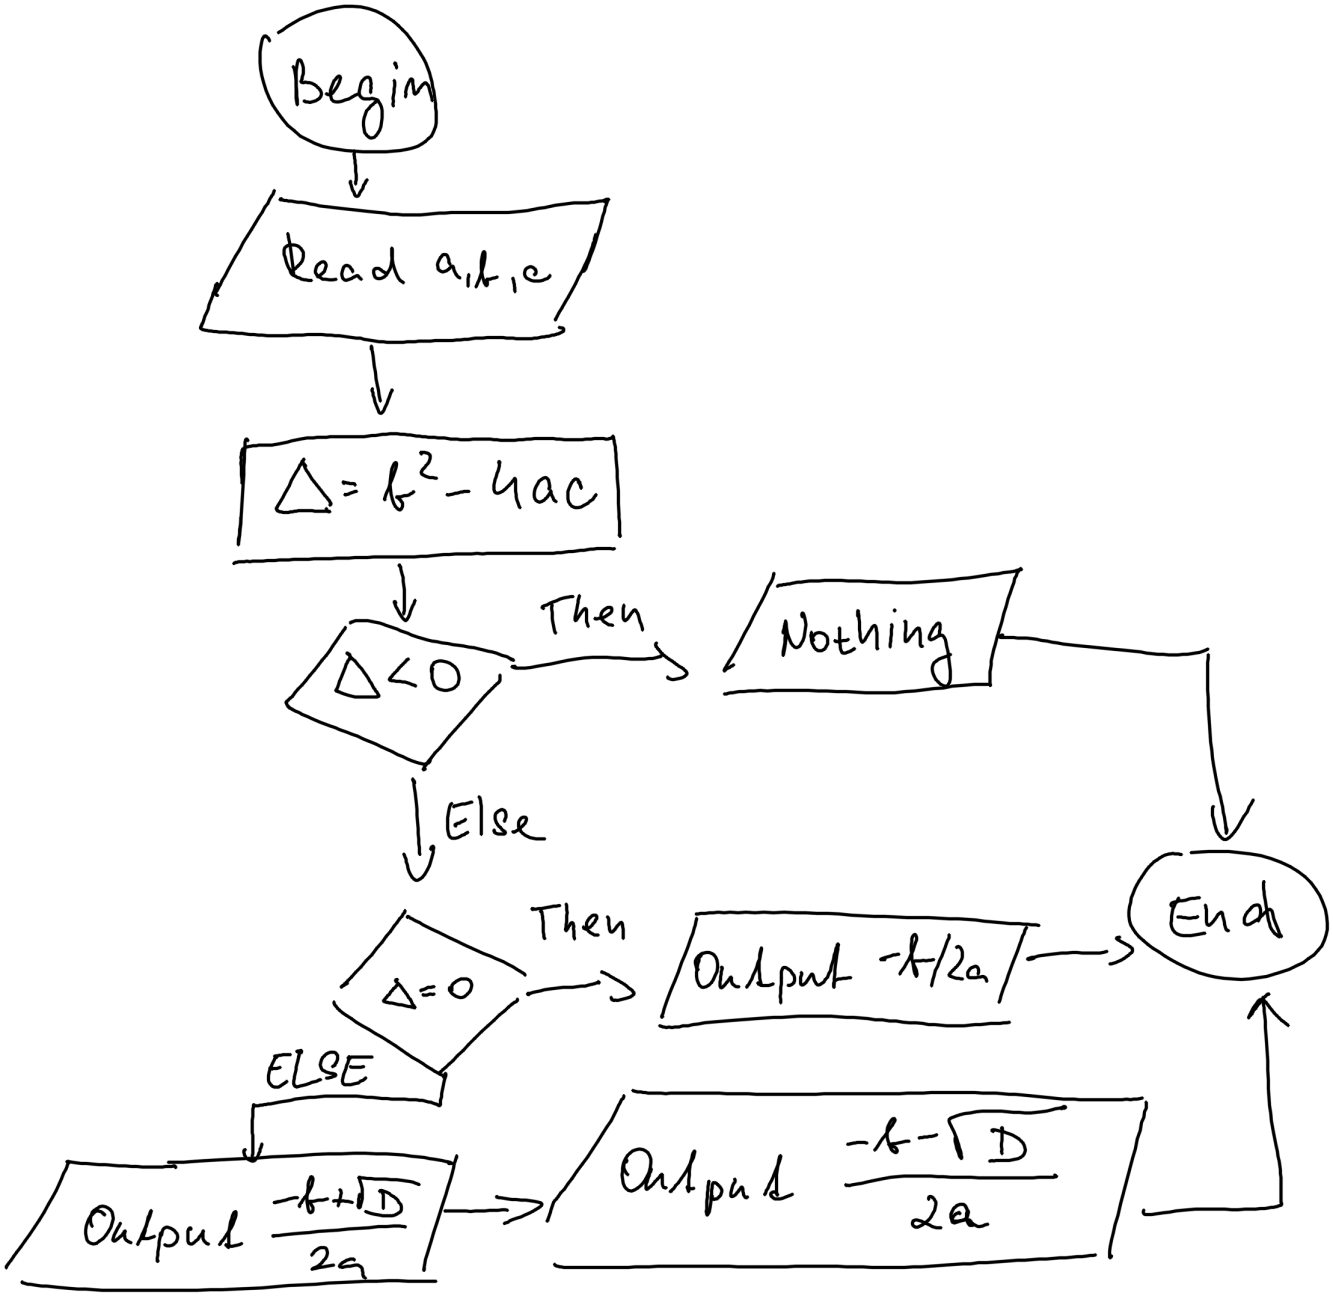 Begin
Read a,b,c
Δ = b² - 4ac
Then
Nothing
Δ < 0
Else
End
Then
Output -b/2a
Δ = 0
ELSE
Output (-b+√D)/2a
Output (-b-√D)/2a